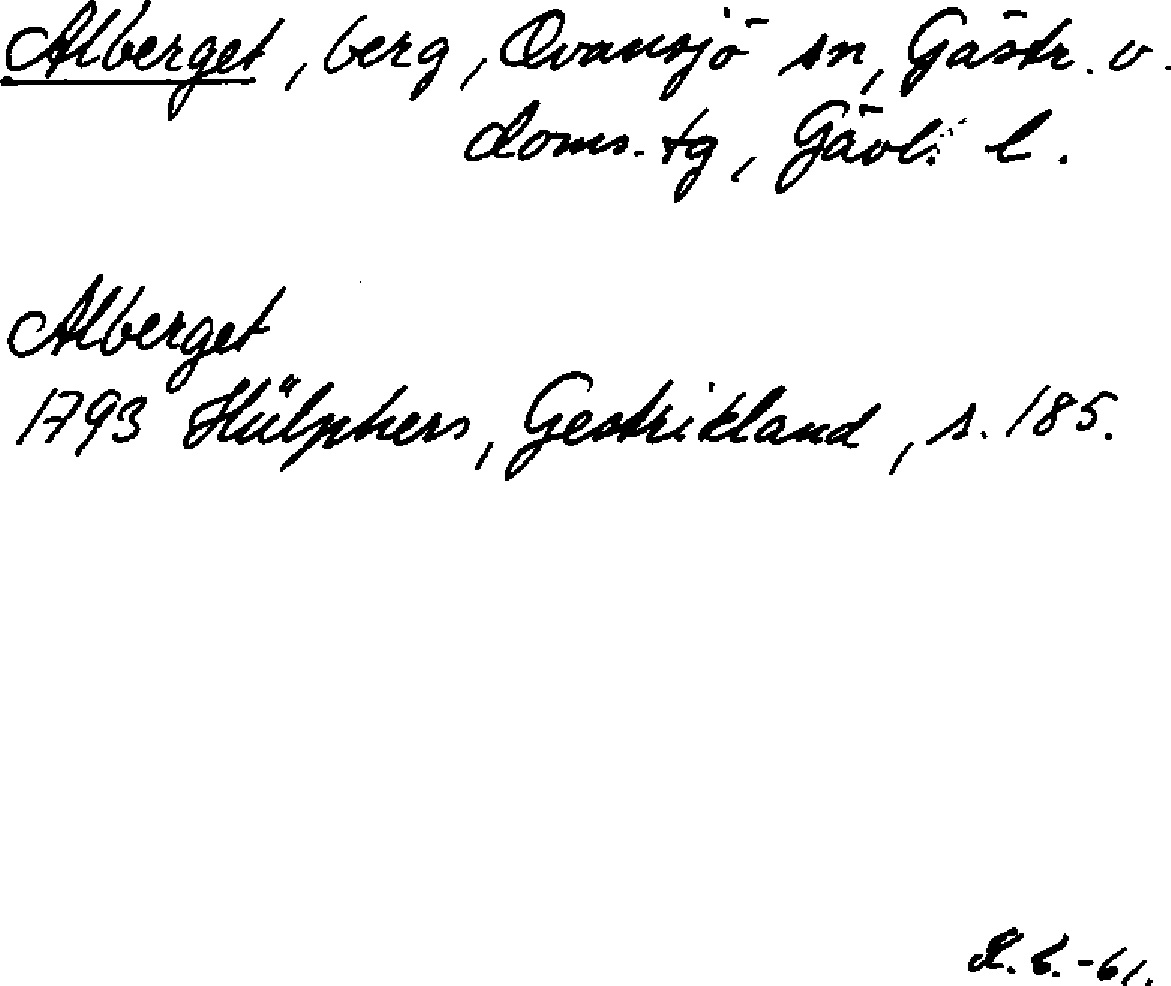 Alberget, berg, Ovansjö sn, Gästr. v.
doms. tg, Gävl. l.
Alberget
1793 Hülphers, Gestrikland, s. 185.